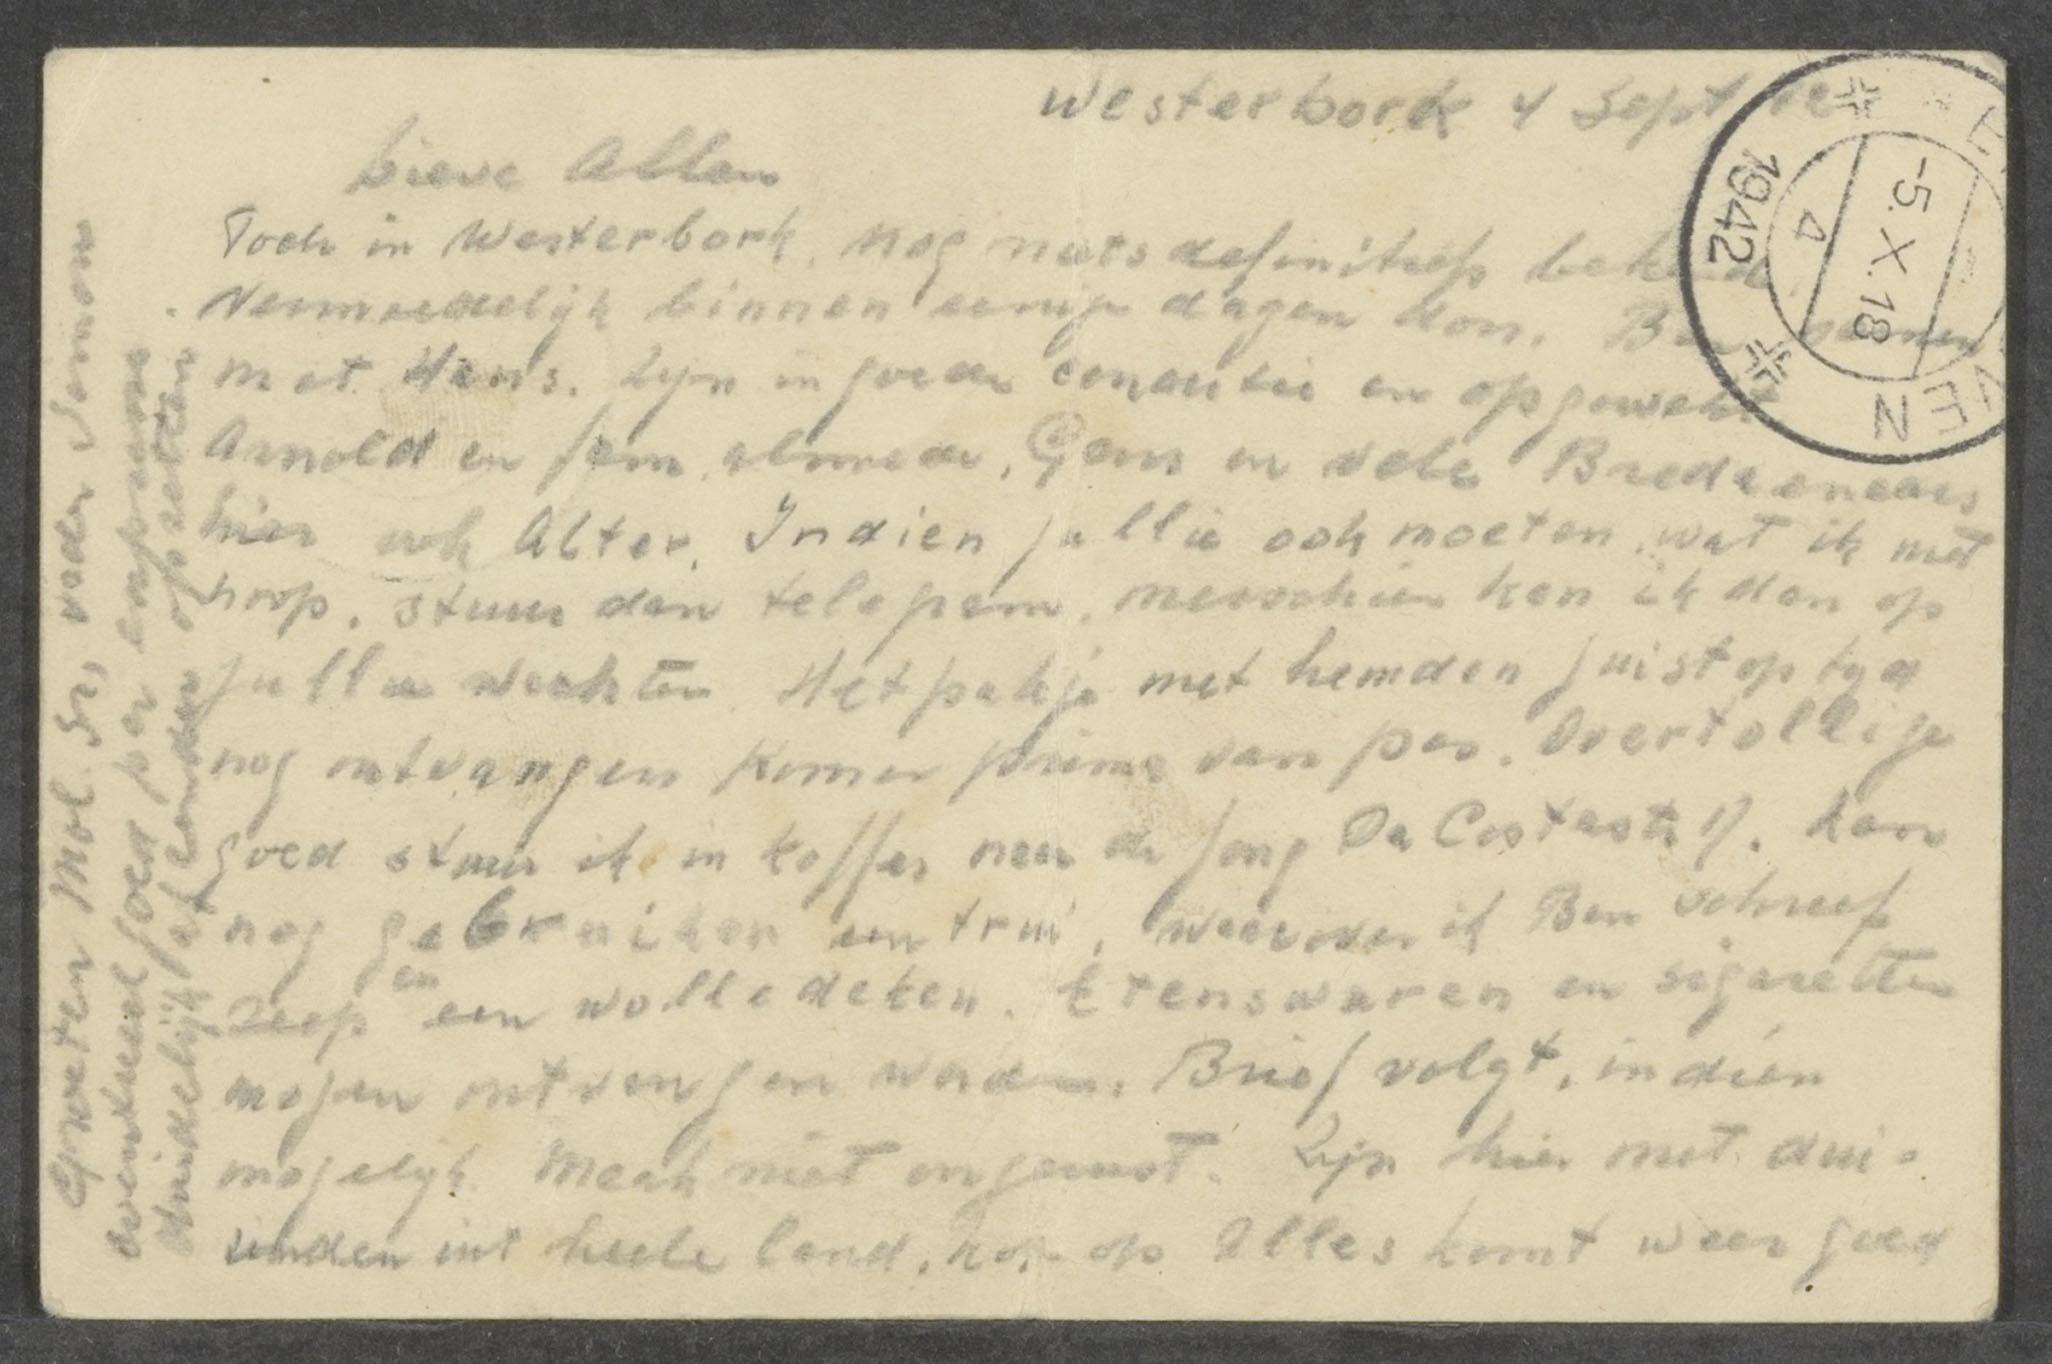 Westerbork 4 Sept
Lieve Allen
Toch in Westerbork. Nog niets definitiefs bekend
Vermoedelijk binnen eenige dagen door. Ben samen
met Hans. Zijn in goede conditie en opgewekt
Arnold en fam. alreede. Gans en vele Bredaenaars
hier ook Alter. Indien jullie ook moeten, wat ik niet
hoop. stuur dan telegram, misschien kan ik dan op
jullie wachten. Het pakje met hemden juist op tijd
nog ontvangen komen prima van pas. Overtollige
goed stuur ik in koffer naar de Jong Da Costastr. 17. kan
nog gebruiken een trui, waarover ik Ben schreef
zeep en een wolle deken. Etenswaren en sigaretten
mogen ontvangen worden. Brief volgt, indien
mogelijk. Maak niet ongerust. Zijn hier met dui-
zenden uit heele land. Kop op Alles komt weer goed
Groeten Mol. Sr,
eventueel goed per expresse
duidelijk afzender opzetten
-5.X.18
4
1942
VEN